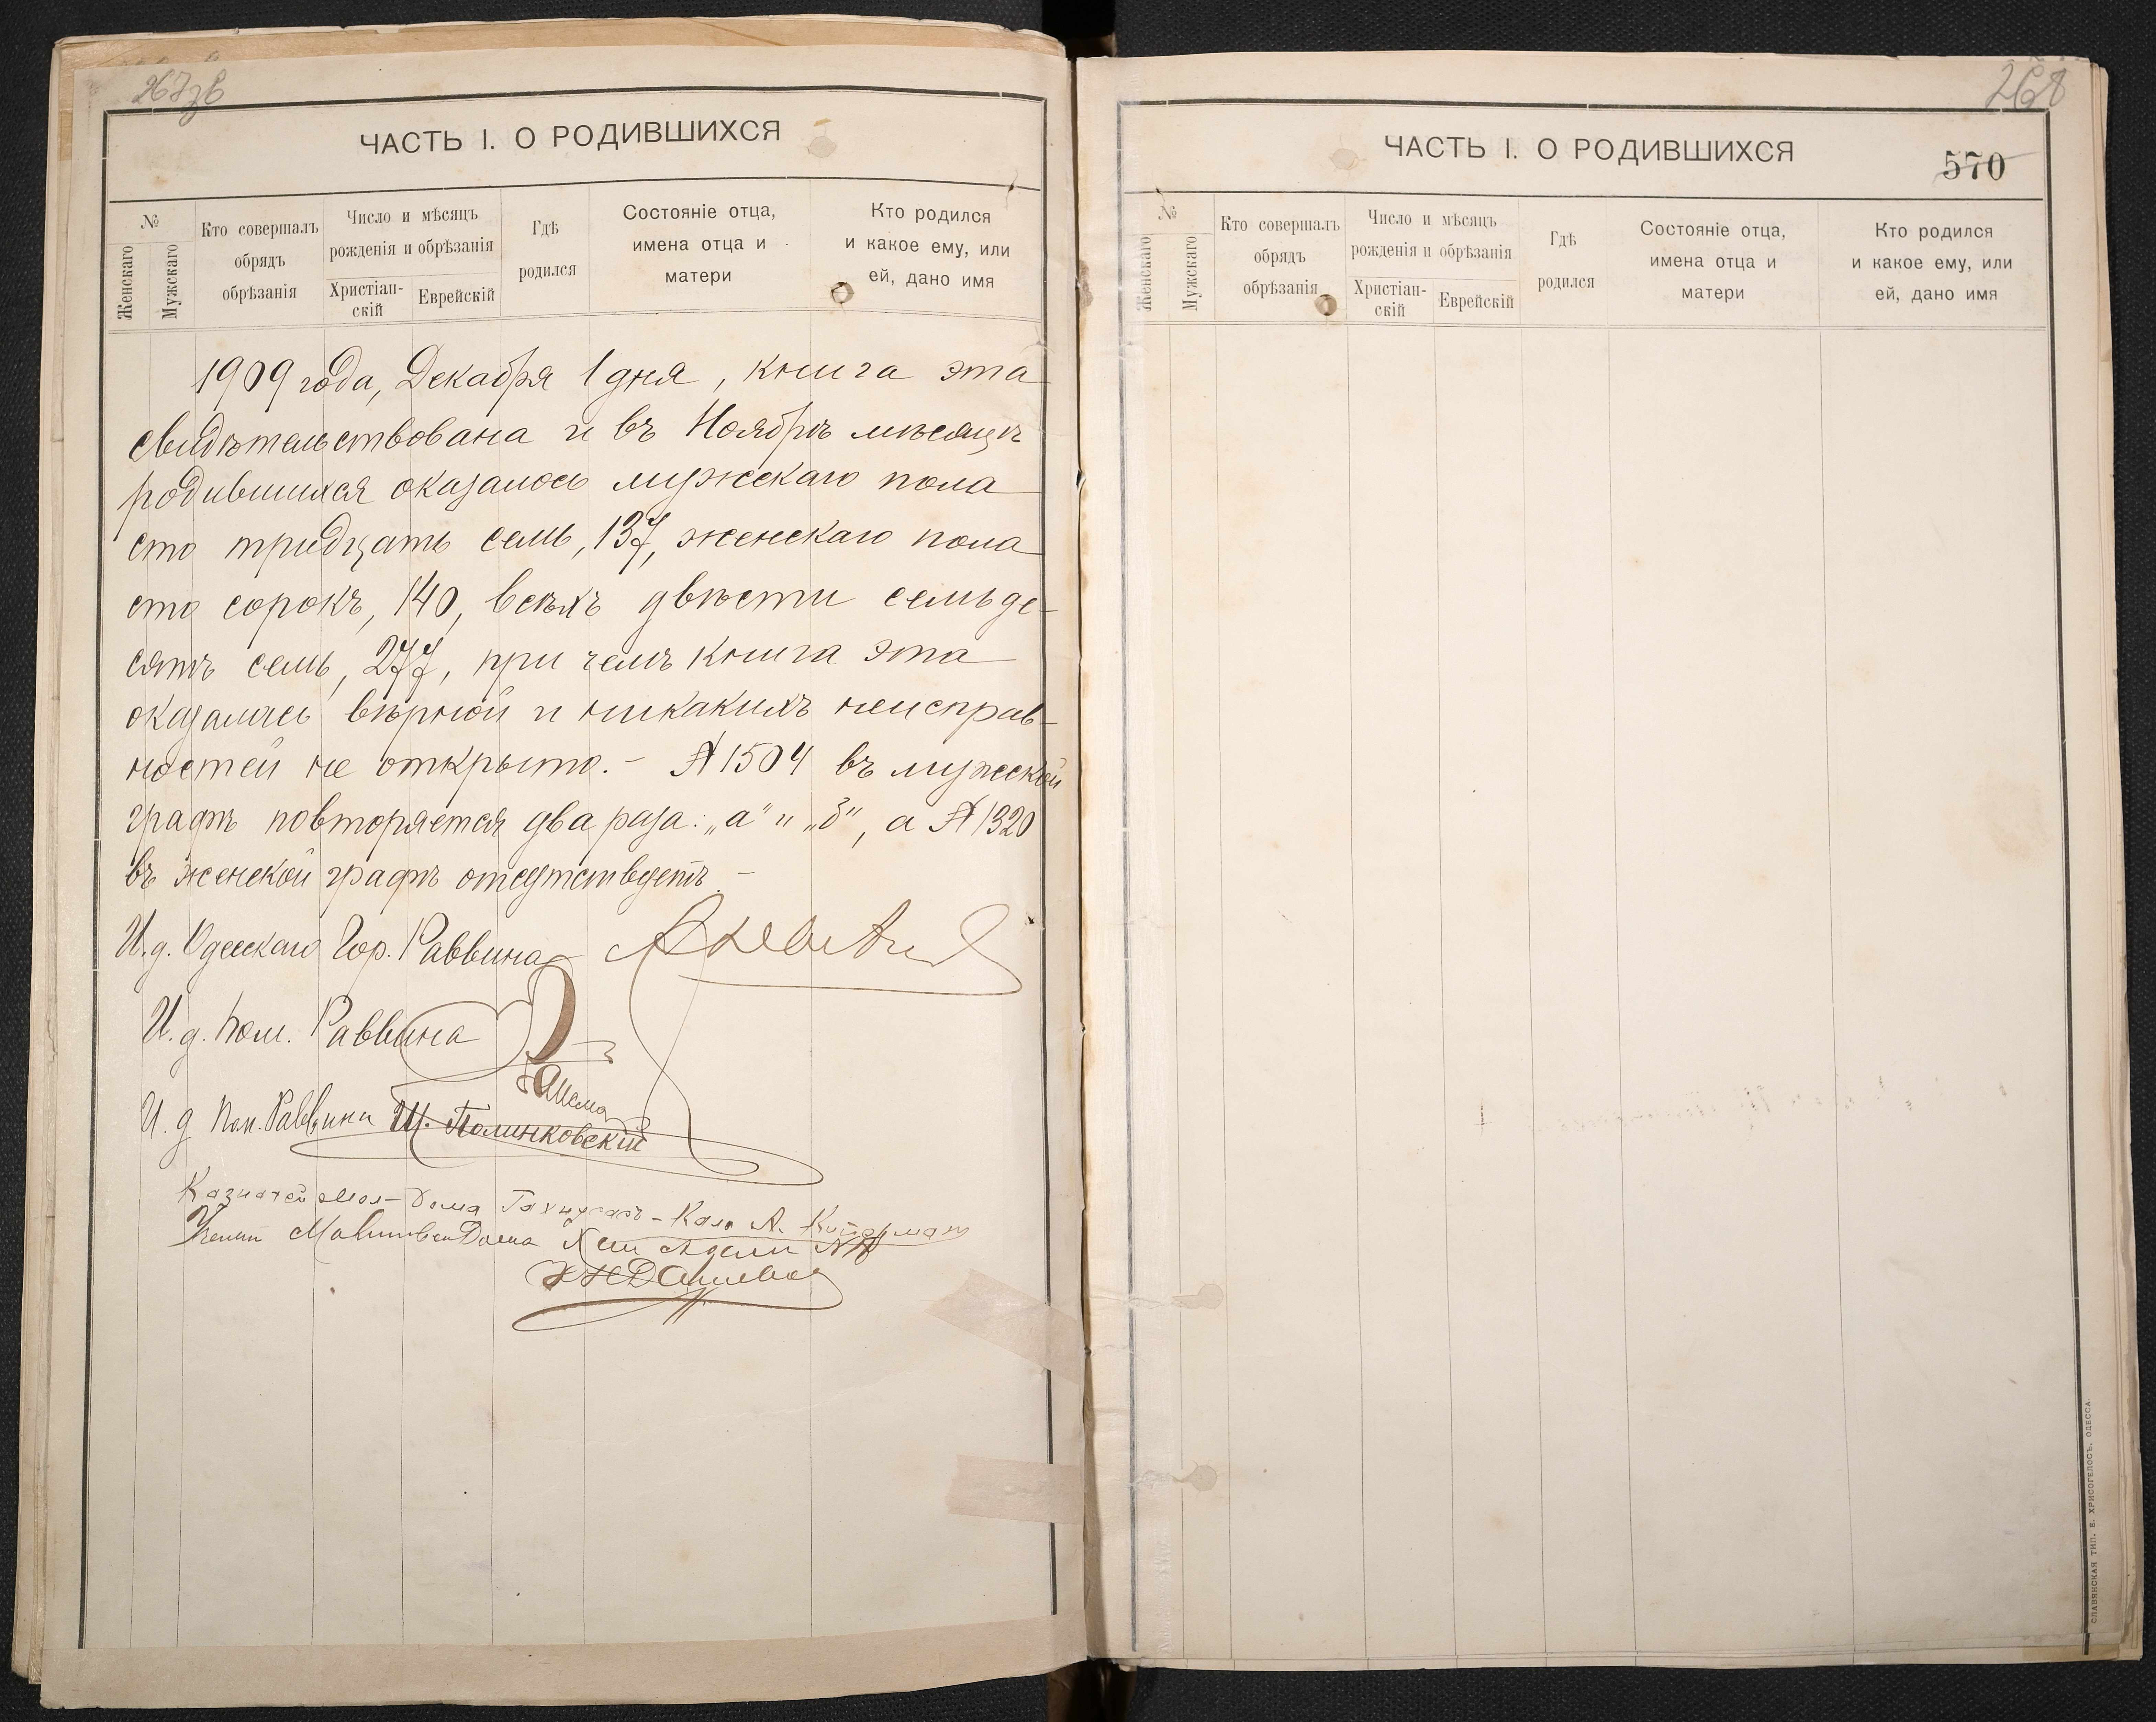 267зв
ЧАСТЬ I. О РОДИВШИХСЯ
№
Женскаго
Мужскаго
Кто совершалъ
обрядъ
обрѣзанія
Число и мѣсяцъ
рожденія и обрѣзанія
Христіан-
скій
Еврейскій
Гдѣ
родился
Состояніе отца,
имена отца и
матери
Кто родился
и какое ему, или
ей, дано имя
1909 года, Декабря 1 дня, книга эта
свидѣтельствована и въ Ноябрѣ мѣсяцѣ
родившихся оказалось мужскаго пола
сто тридцать семь, 137, женскаго пола
сто сорокъ, 140, всѣхъ двѣсти семьде-
сятъ семь, 277, при чемъ книга эта
оказалась вѣрной и никакихъ неисправ-
ностей не открыто. - № 1504 въ мужской
графѣ повторяется два раза: „а" и „б", а № 1320
въ женской графѣ отсутствуетъ. -
И. д. Одесскаго Гор. Раввина
И. д. Пом. Раввина
И. д. Пом. Раввина Ш. Полинковскій
Казначей Мол-Дома
Ученый Молитвен Дома
268
ЧАСТЬ I. О РОДИВШИХСЯ
570
№
Женскаго
Мужскаго
Кто совершалъ
обрядъ
обрѣзанія
Число и мѣсяцъ
рожденія и обрѣзанія
Христіан-
скій
Еврейскій
Гдѣ
родился
Состояніе отца,
имена отца и
матери
Кто родился
и какое ему, или
ей, дано имя
СЛАВЯНСКАЯ ТИП. Е. ХРИСОГЕЛОСЪ. ОДЕССА.